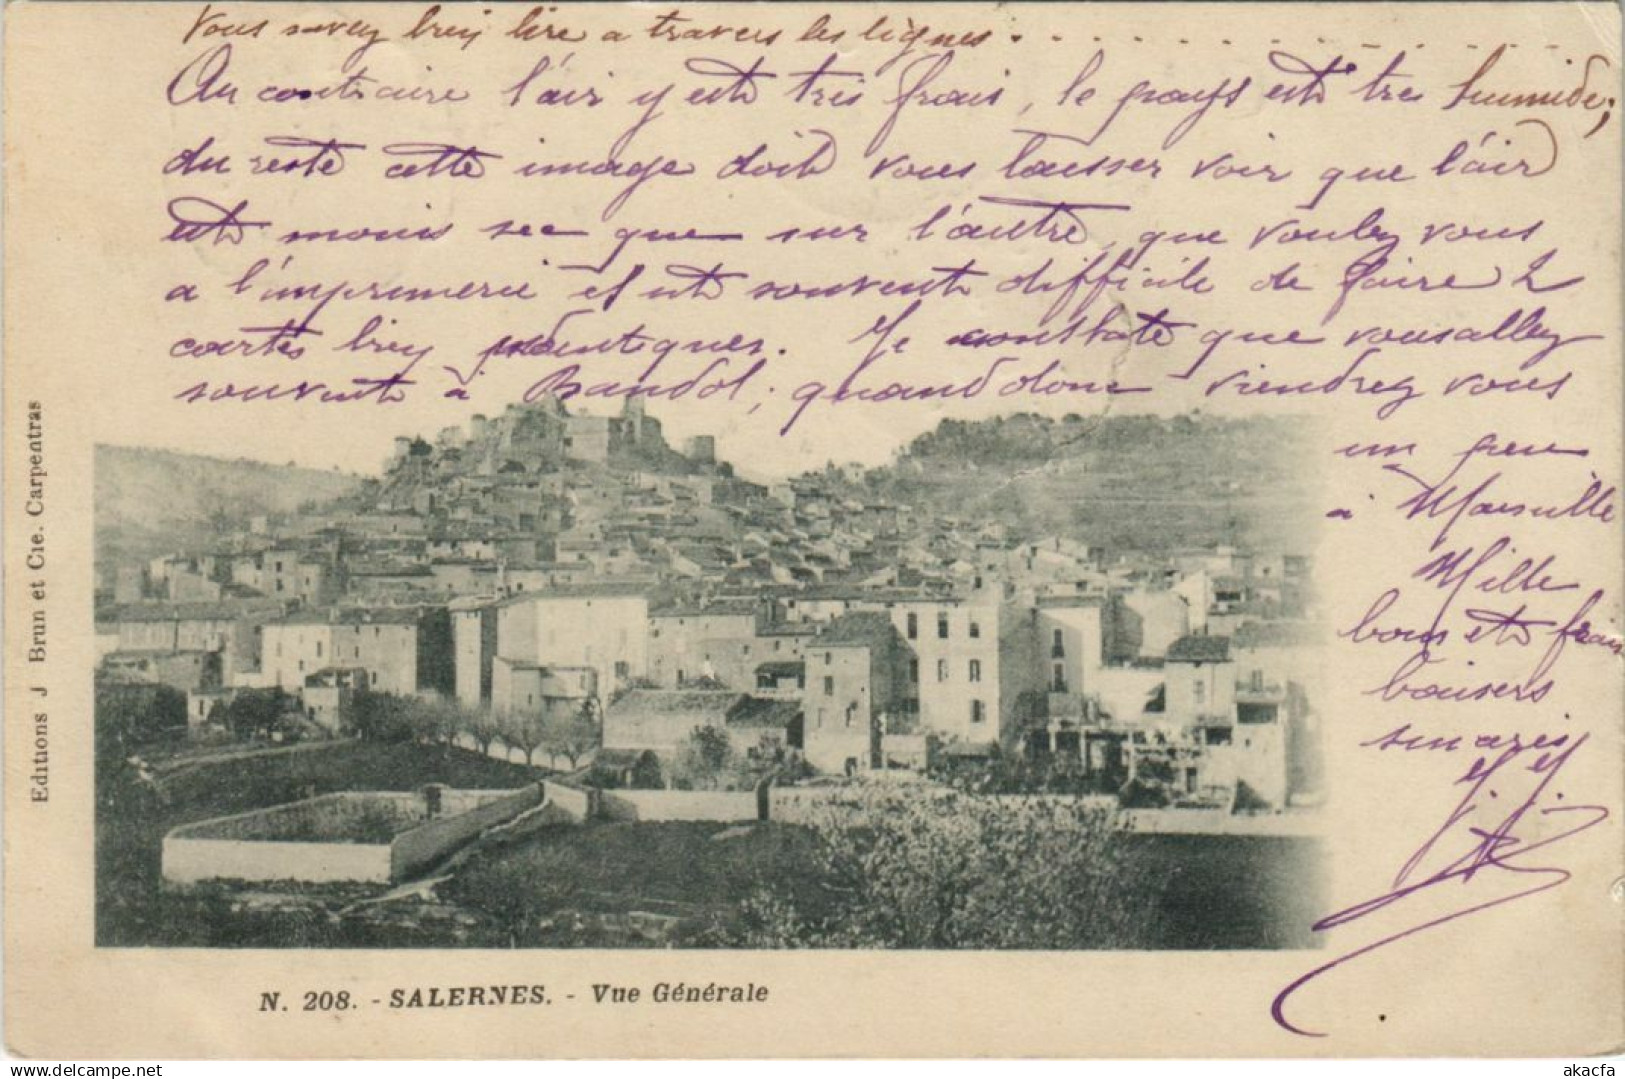 Vous savez bien lire a travers les lignes . . . . . . . . . . . . .
Au contraire l'air y est très frais, le pays est tres humide;
du reste cette image doit vous laisser voir que l'air
est moins sec que sur l'autre, que voulez vous
a l'imprimerie il est souvent difficile de faire 2
cartes bien identiques. Je constate que vous allez
souvent à Bandol; quand donc viendrez vous
un peu
à Marseille
Mille
bons et frais
baisers
J. J.
Editions J Brun et Cie. Carpentras
N. 208. - SALERNES. - Vue Générale
delcampe.net
akacfa